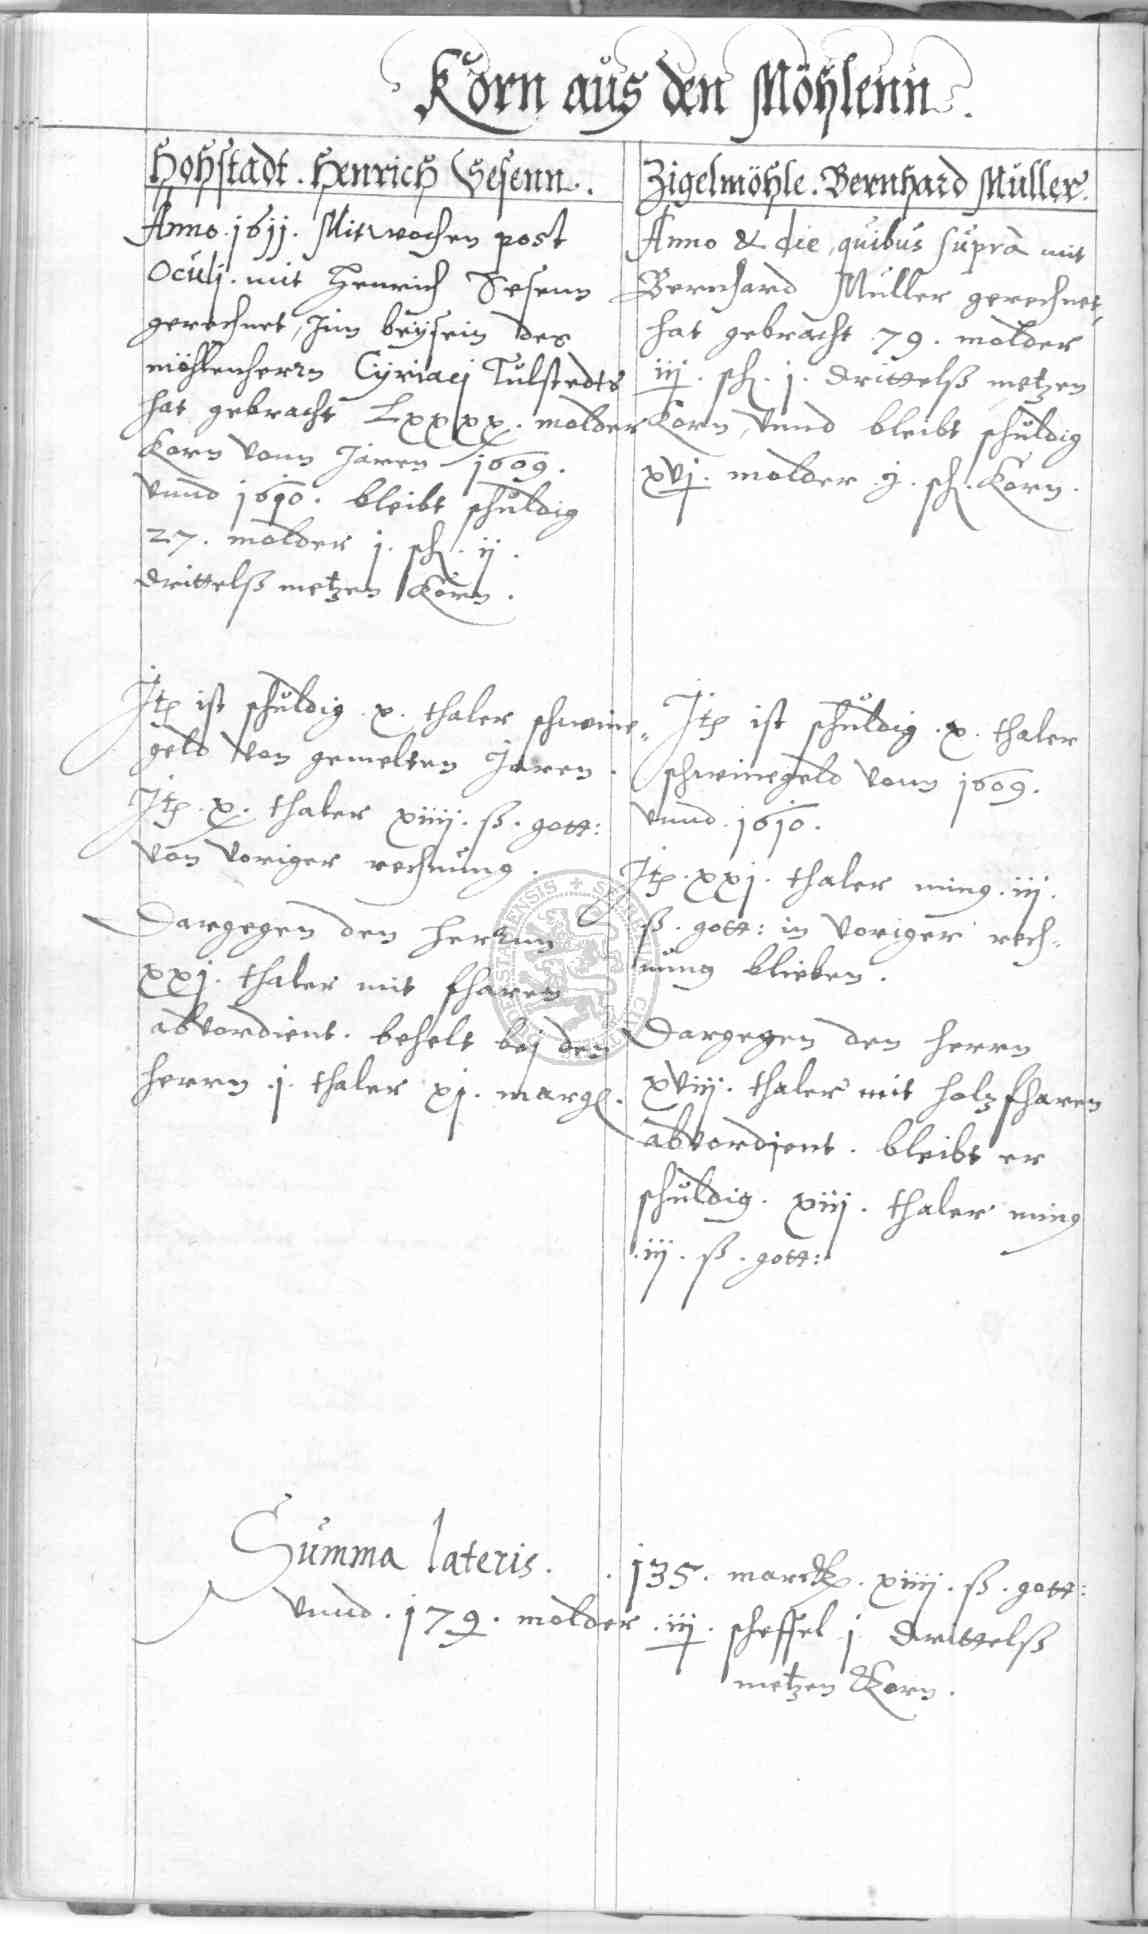 Korn aus den Möhlenn.
Hohstadt. Henrich Sesenn.
Anno. 1611. Mitwochen post
Oculj. mit Henrich Sesenn
gerechnet, Jnn beysein des
möhlenherrn Cyriacj Tulstedts
hat gebracht Lxxxx. molder
Korn vonn Jaren 1609.
vnnd 1610. bleibt schuldig
27. molder j. sch. ij.
drittelß metzen Korn.
Jtem ist schuldig. x. thaler schweine„
geld von gemelten Jaren.
Jtem. x. thaler xiiij. ß. gott:
von voriger rechnung.
Dargegen den herrnn
xxj. thaler mit fharen
abvordient. behelt bej den
herrn. j. thaler xj. marg.
Zigelmöhle. Bernhard Müller.
Anno & die, quibus suprà mit
Bernhard Müller gerechnet,
hat gebracht 79. molder
iij. sch. j. drittelß metzen
Korn, vnnd bleibt schuldig
xvj. molder. j. sch. Korn.
Jtem ist schuldig. x. thaler
schweinegeld vonn 1609.
vnnd. 1610.
Jtem. xxj. thaler minus. iij.
ß. gott: in voriger rech„
nung blieben.
Dargegen den herrn
xviij. thaler mit holz fharen
abvordient. bleibt er
schuldig. xiij. thaler minus
.iij. ß. gott:
Summa lateris. . 135. marck. xiiij. ß. gott:
vnnd. 179. molder. iij. scheffel j drittelß
metzen Korn.